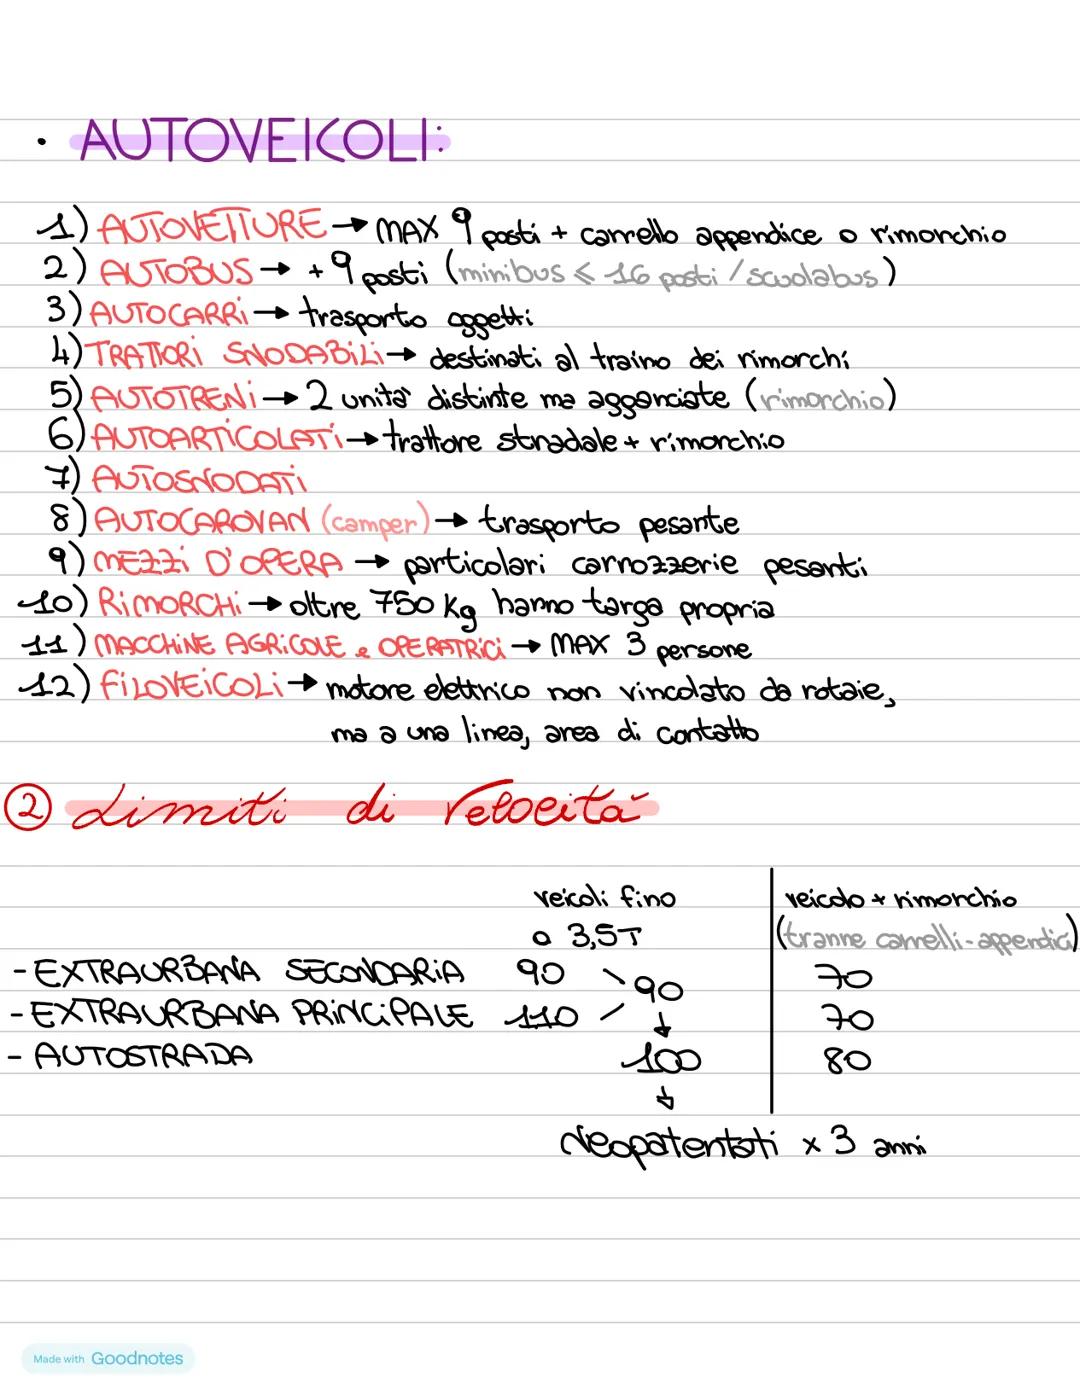 • AUTOVEICOLI:
1) AUTOVETTURE → MAX 9 posti + carrello appendice o rimorchio
2) AUTOBUS → + 9 posti (minibus ≤ 16 posti / scuolabus)
3) AUTOCARRi → trasporto oggetti
4) TRATTORi SNODABiLi → destinati al traino dei rimorchi
5) AUTOTRENi → 2 unità distinte ma agganciate (rimorchio)
6) AUTOARTiCOLATi → trattore stradale + rimorchio
7) AUTOSNODATi
8) AUTOCAROVAN (camper) → trasporto pesante
9) MEZZi D'OPERA → particolari carrozzerie pesanti
10) RiMORCHi → oltre 750 Kg hanno targa propria
11) MACCHiNE AGRiCOLE e OPERATRiCi → MAX 3 persone
12) FiLOVEiCOLi → motore elettrico non vincolato da rotaie,
ma a una linea, area di contatto
② Limiti di Velocità
veicoli fino veicolo + rimorchio
a 3,5T (tranne carrelli-appendici)
- EXTRAURBANA SECONDARiA 90 90 70
- EXTRAURBANA PRiNCiPALE 110 70
- AUTOSTRADA 100 80
Neopatentati x 3 anni
Made with Goodnotes